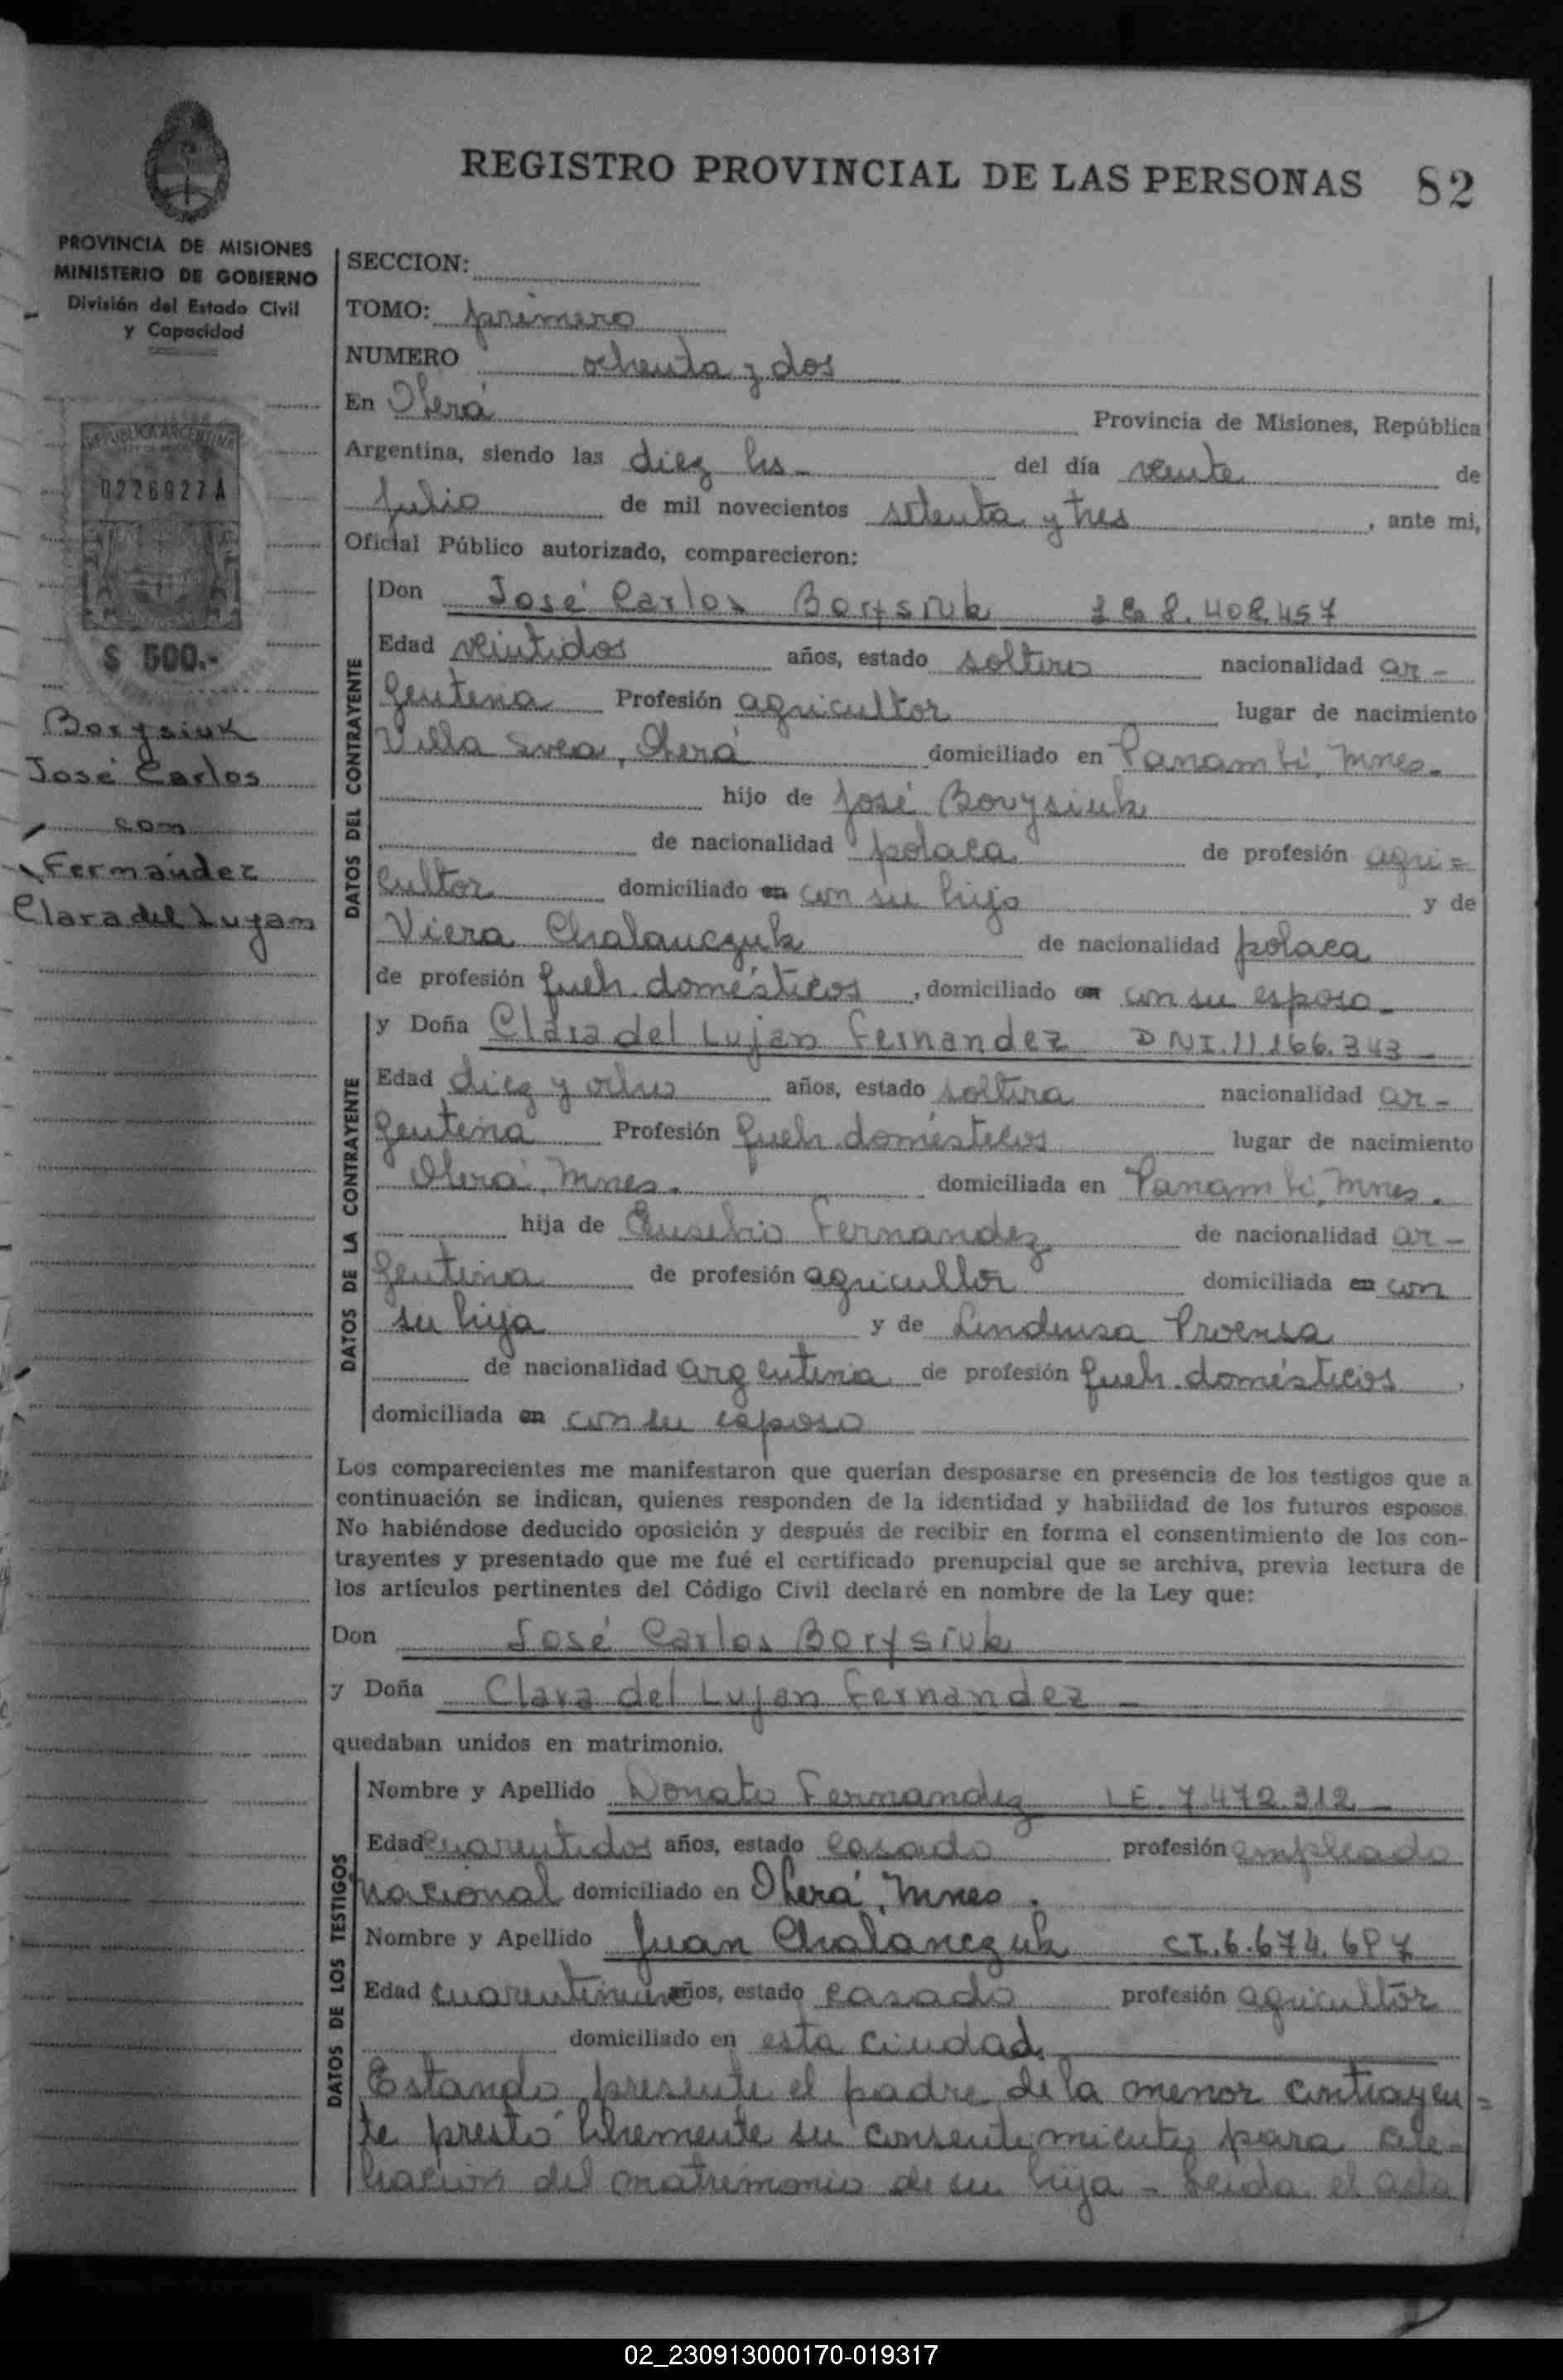 REGISTRO PROVINCIAL DE LAS PERSONAS 82
PROVINCIA DE MISIONES
MINISTERIO DE GOBIERNO
División del Estado Civil
y Capacidad
REPUBLICA ARGENTINA
0226927A
$ 500.-
Borysiuk
José Carlos
con
Fernández
Clara del Lujan
SECCION:
TOMO: primero
NUMERO ochenta y dos
En Oberá Provincia de Misiones, República
Argentina, siendo las diez hs- del día veinte de
Julio de mil novecientos setenta y tres, ante mi,
Oficial Público autorizado, comparecieron:
DATOS DEL CONTRAYENTE
Don José Carlos Borysiuk 8.408.457
Edad veintidos años, estado soltero nacionalidad ar-
gentina Profesión agricultor lugar de nacimiento
Villa Svea, Oberá domiciliado en Panambí, Mnes.
hijo de José Borysiuk
de nacionalidad polaca de profesión agri=
cultor domiciliado en con su hijo y de
Viera Chalanczuk de nacionalidad polaca
de profesión queh. domésticos, domiciliado en con su esposo-
DATOS DE LA CONTRAYENTE
y Doña Clara del Lujan Fernandez DNI.11.166.343-
Edad diez y ocho años, estado soltera nacionalidad ar-
gentina Profesión queh. domésticos lugar de nacimiento
Oberá, Mnes. domiciliada en Panambí, Mnes.
hija de Eusebio Fernandez de nacionalidad ar-
gentina de profesión agricultor domiciliada en con
su hija y de Lindensa Proensa
de nacionalidad argentina de profesión queh. domésticos,
domiciliada en con su esposo
Los comparecientes me manifestaron que querían desposarse en presencia de los testigos que a
continuación se indican, quienes responden de la identidad y habilidad de los futuros esposos.
No habiéndose deducido oposición y después de recibir en forma el consentimiento de los con-
trayentes y presentado que me fué el certificado prenupcial que se archiva, previa lectura de
los artículos pertinentes del Código Civil declaré en nombre de la Ley que:
Don José Carlos Borysiuk
y Doña Clara del Lujan Fernandez -
quedaban unidos en matrimonio.
DATOS DE LOS TESTIGOS
Nombre y Apellido Donato Fernandez LE. 7.472.312-
Edad cuarentidos años, estado casado profesión empleado
nacional domiciliado en Oberá, Mnes.
Nombre y Apellido Juan Chalanczuk CI.6.674.687
Edad cuarentinueve años, estado casado profesión agricultor
domiciliado en esta ciudad
Estando presente el padre de la menor contrayen=
te prestó libremente su consentimiento para cele-
bración del matrimonio de su hija - Leida el acta
02_230913000170-019317